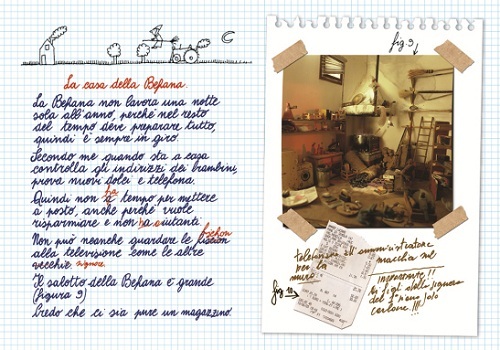 La casa della Befana.
La Befana non lavora una notte
sola all'anno, perché nel resto
del tempo deve preparare tutto,
quindi è sempre in giro.
Secondo me quando sta a casa
controlla gli indirizzi dei bambini,
prova nuovi dolci e telefona.
ha
Quindi non a tempo per mettere
a posto, anche perché vuole
risparmiare e non ha aiutanti.
fiction
Non può neanche guardare le
alla televisione come le altre
vecchie signore.
Il salotto della Befana è grande
(figura 9)
Credo che ci sia pure un magazzino.
fig 9
telefonare all'amministratore
per la macchia sul
muro
fig 10
importante!!
Ai figli della signora
del 1° piano solo
carbone!!!